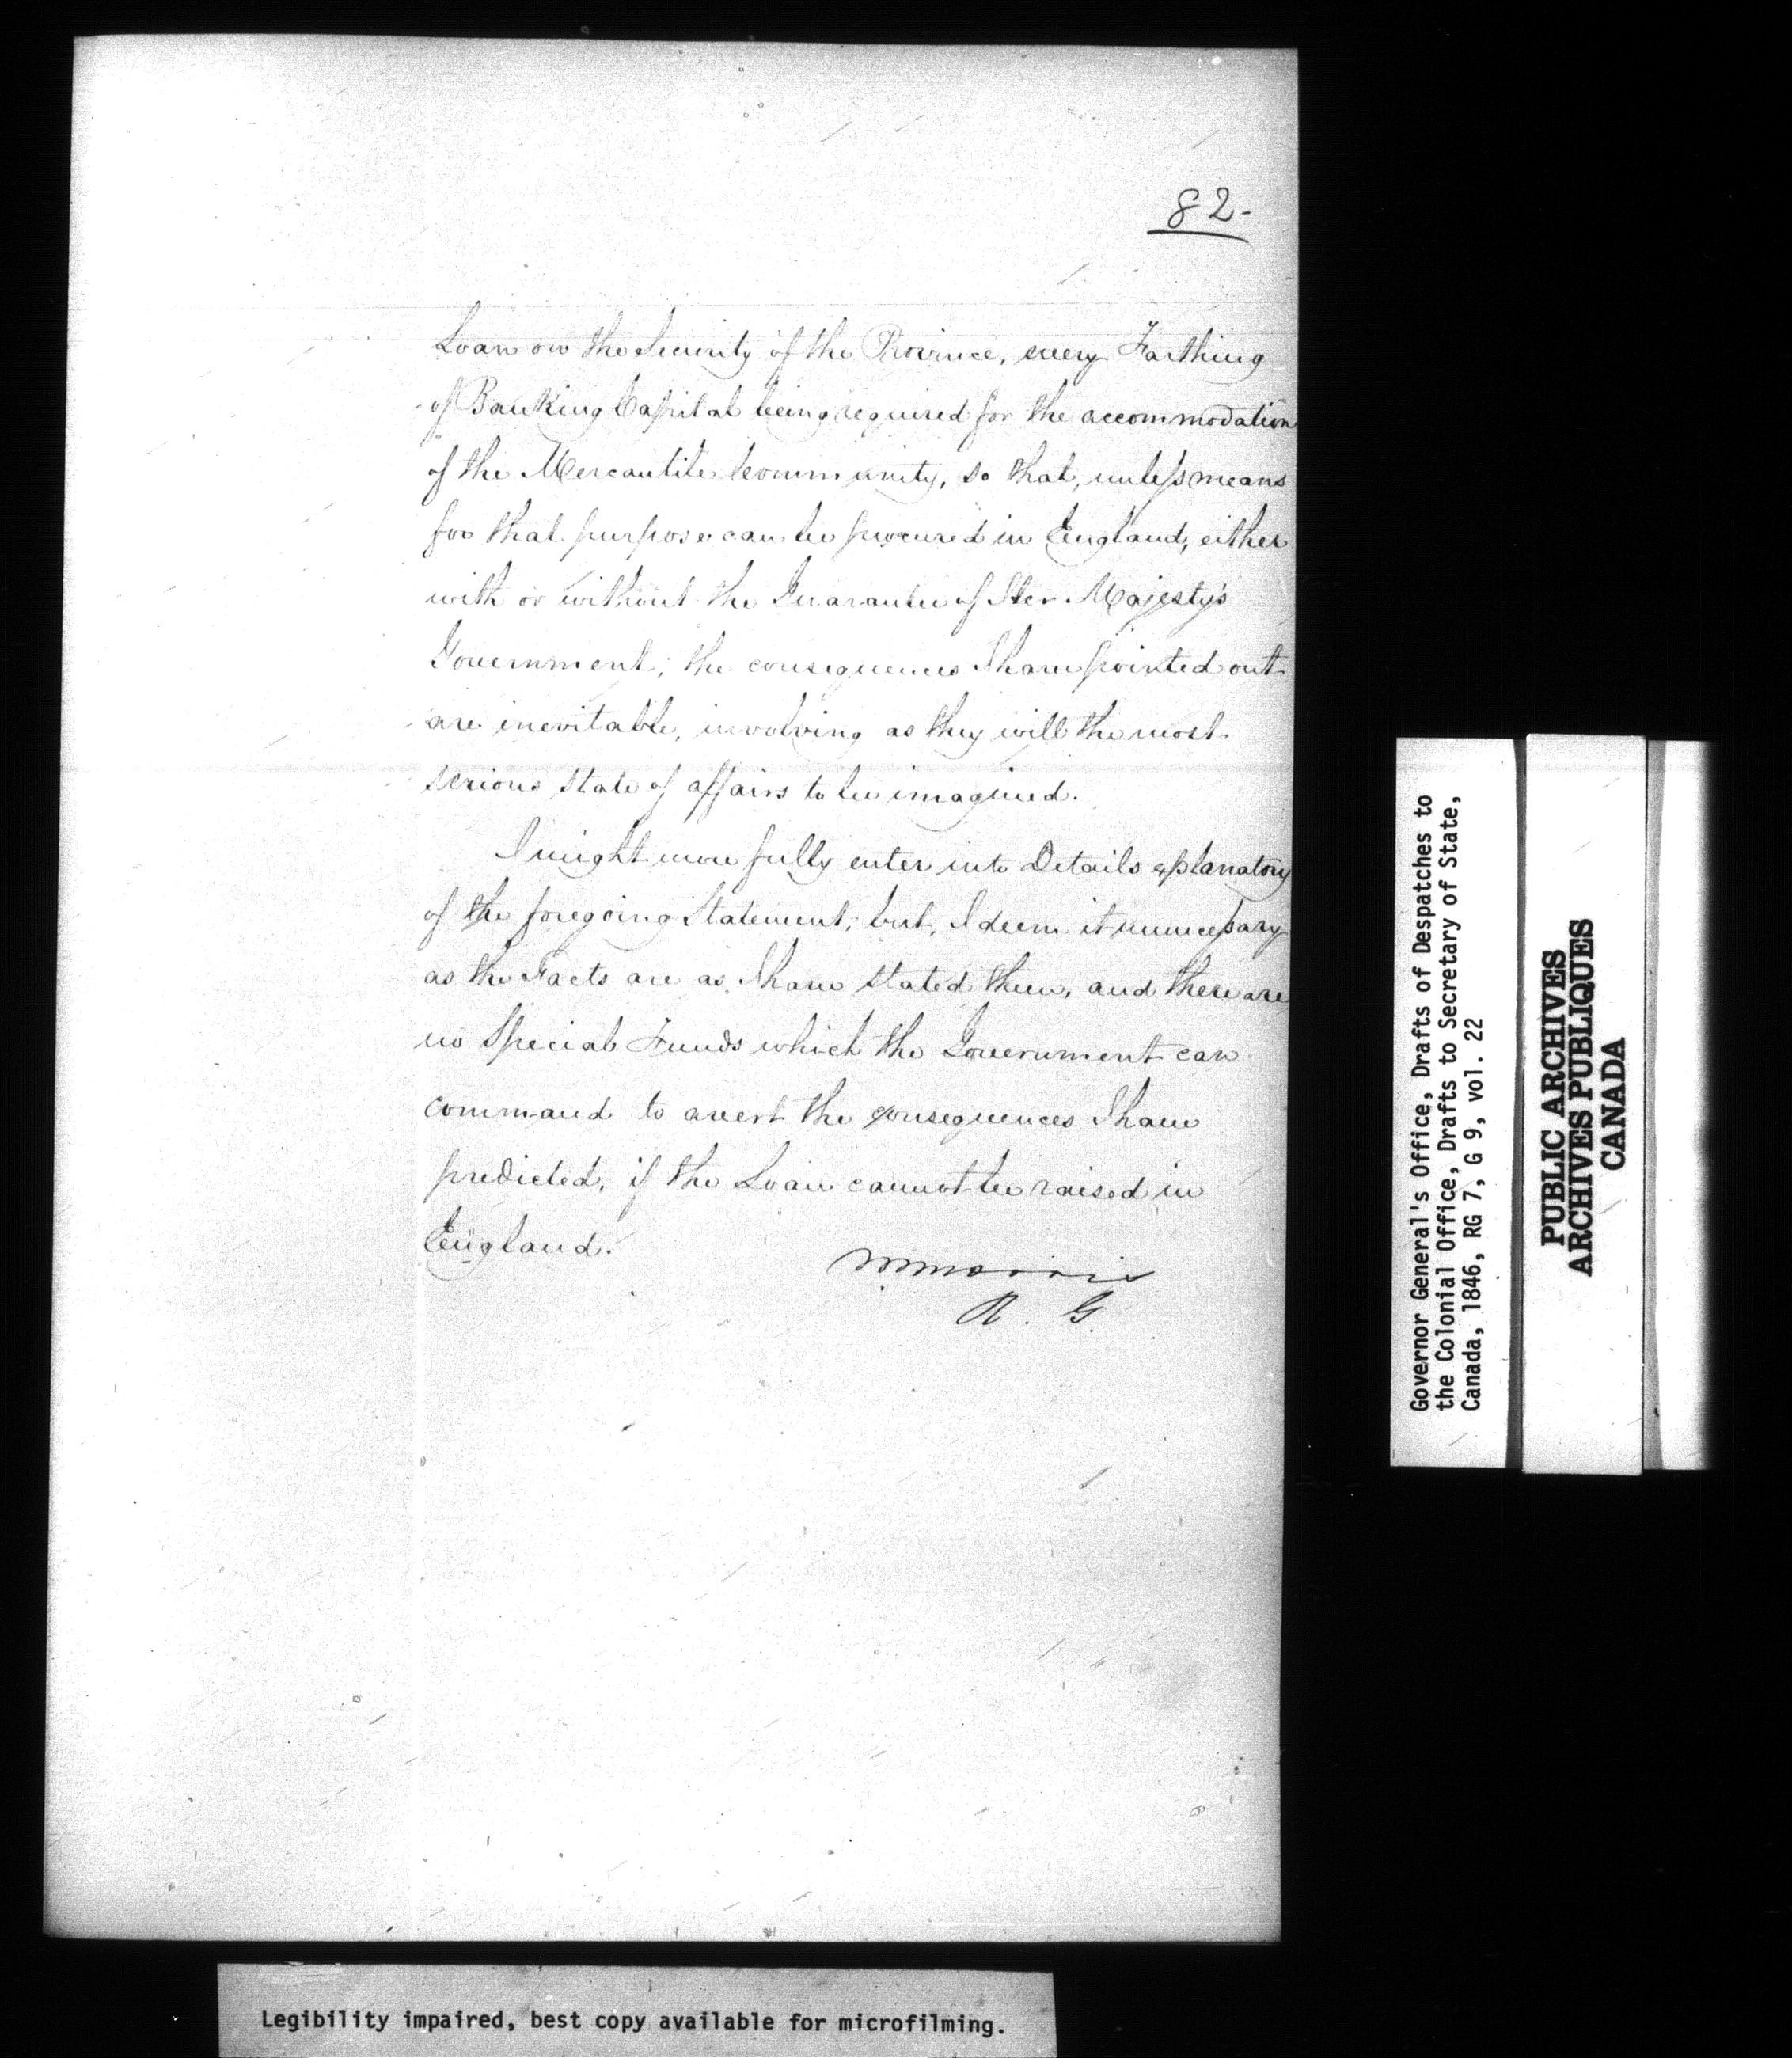 82-
Loan on the Security of the Province, every Farthing
of Banking Capital being required for the accommodation
of the Mercantile Community, so that, unless means
for that purpose can be procured in England, either
with or without the Guarantee of Her Majesty's
Government; the consequences I have pointed out
are inevitable, involving as they will the most
serious state of affairs to be imagined.
I might more fully enter into Details explanatory
of the foregoing Statement; but, I deem it unnecessary
as the Facts are as I have stated them, and there are
no Special Funds which the Government can
command to avert the consequences I have
predicted, if the Loan cannot be raised in
England.
W Morris
R. G.
Governor General's Office, Drafts of Despatches to
the Colonial Office, Drafts to Secretary of State,
Canada, 1846, RG 7, G 9, vol. 22
PUBLIC ARCHIVES
ARCHIVES PUBLIQUES
CANADA
Legibility impaired, best copy available for microfilming.